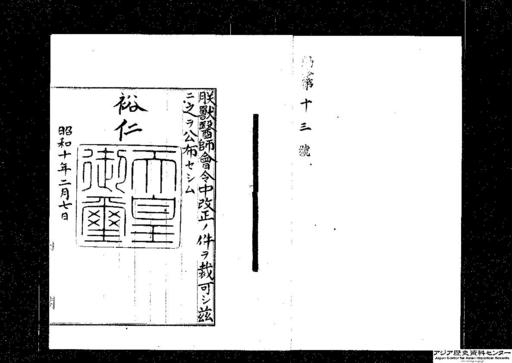 第十三號
朕獸醫師會令中改正ノ件ヲ裁可シ茲
ニ之ヲ公布セシム
裕仁
天皇
御璽
昭和十年二月七日
アジア歴史資料センター
Japan Center for Asian Historical Records